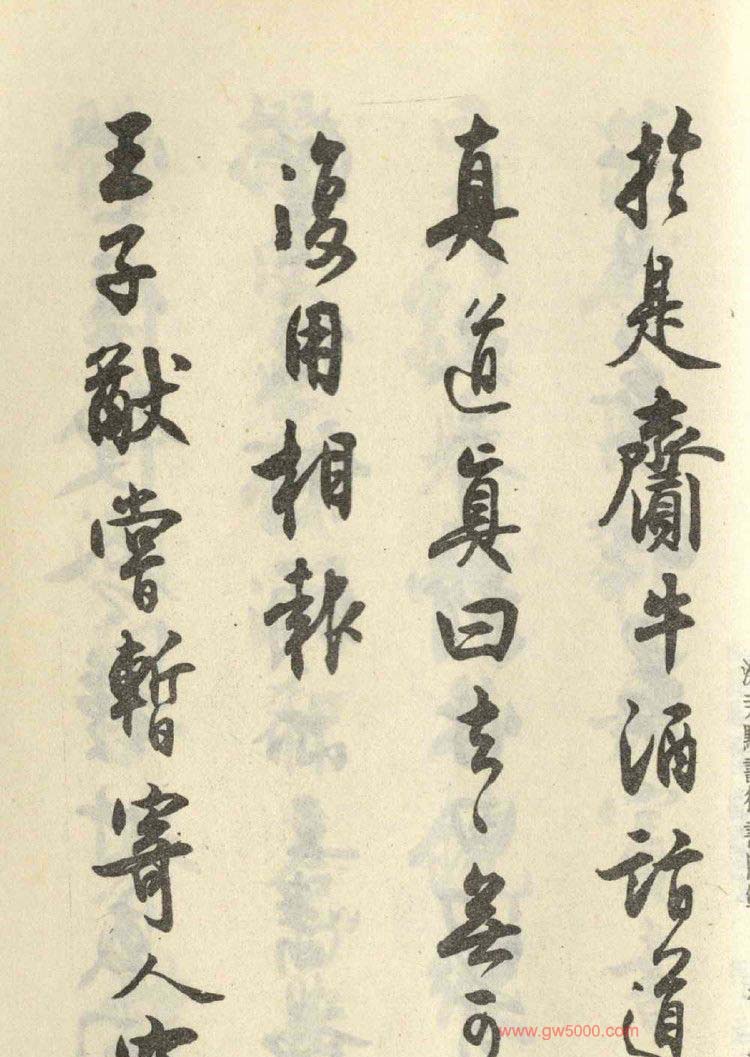 於是齎牛酒詣道
真道真曰去〻無可
復用相報
王子猷嘗暫寄人空
www.gw5000.com